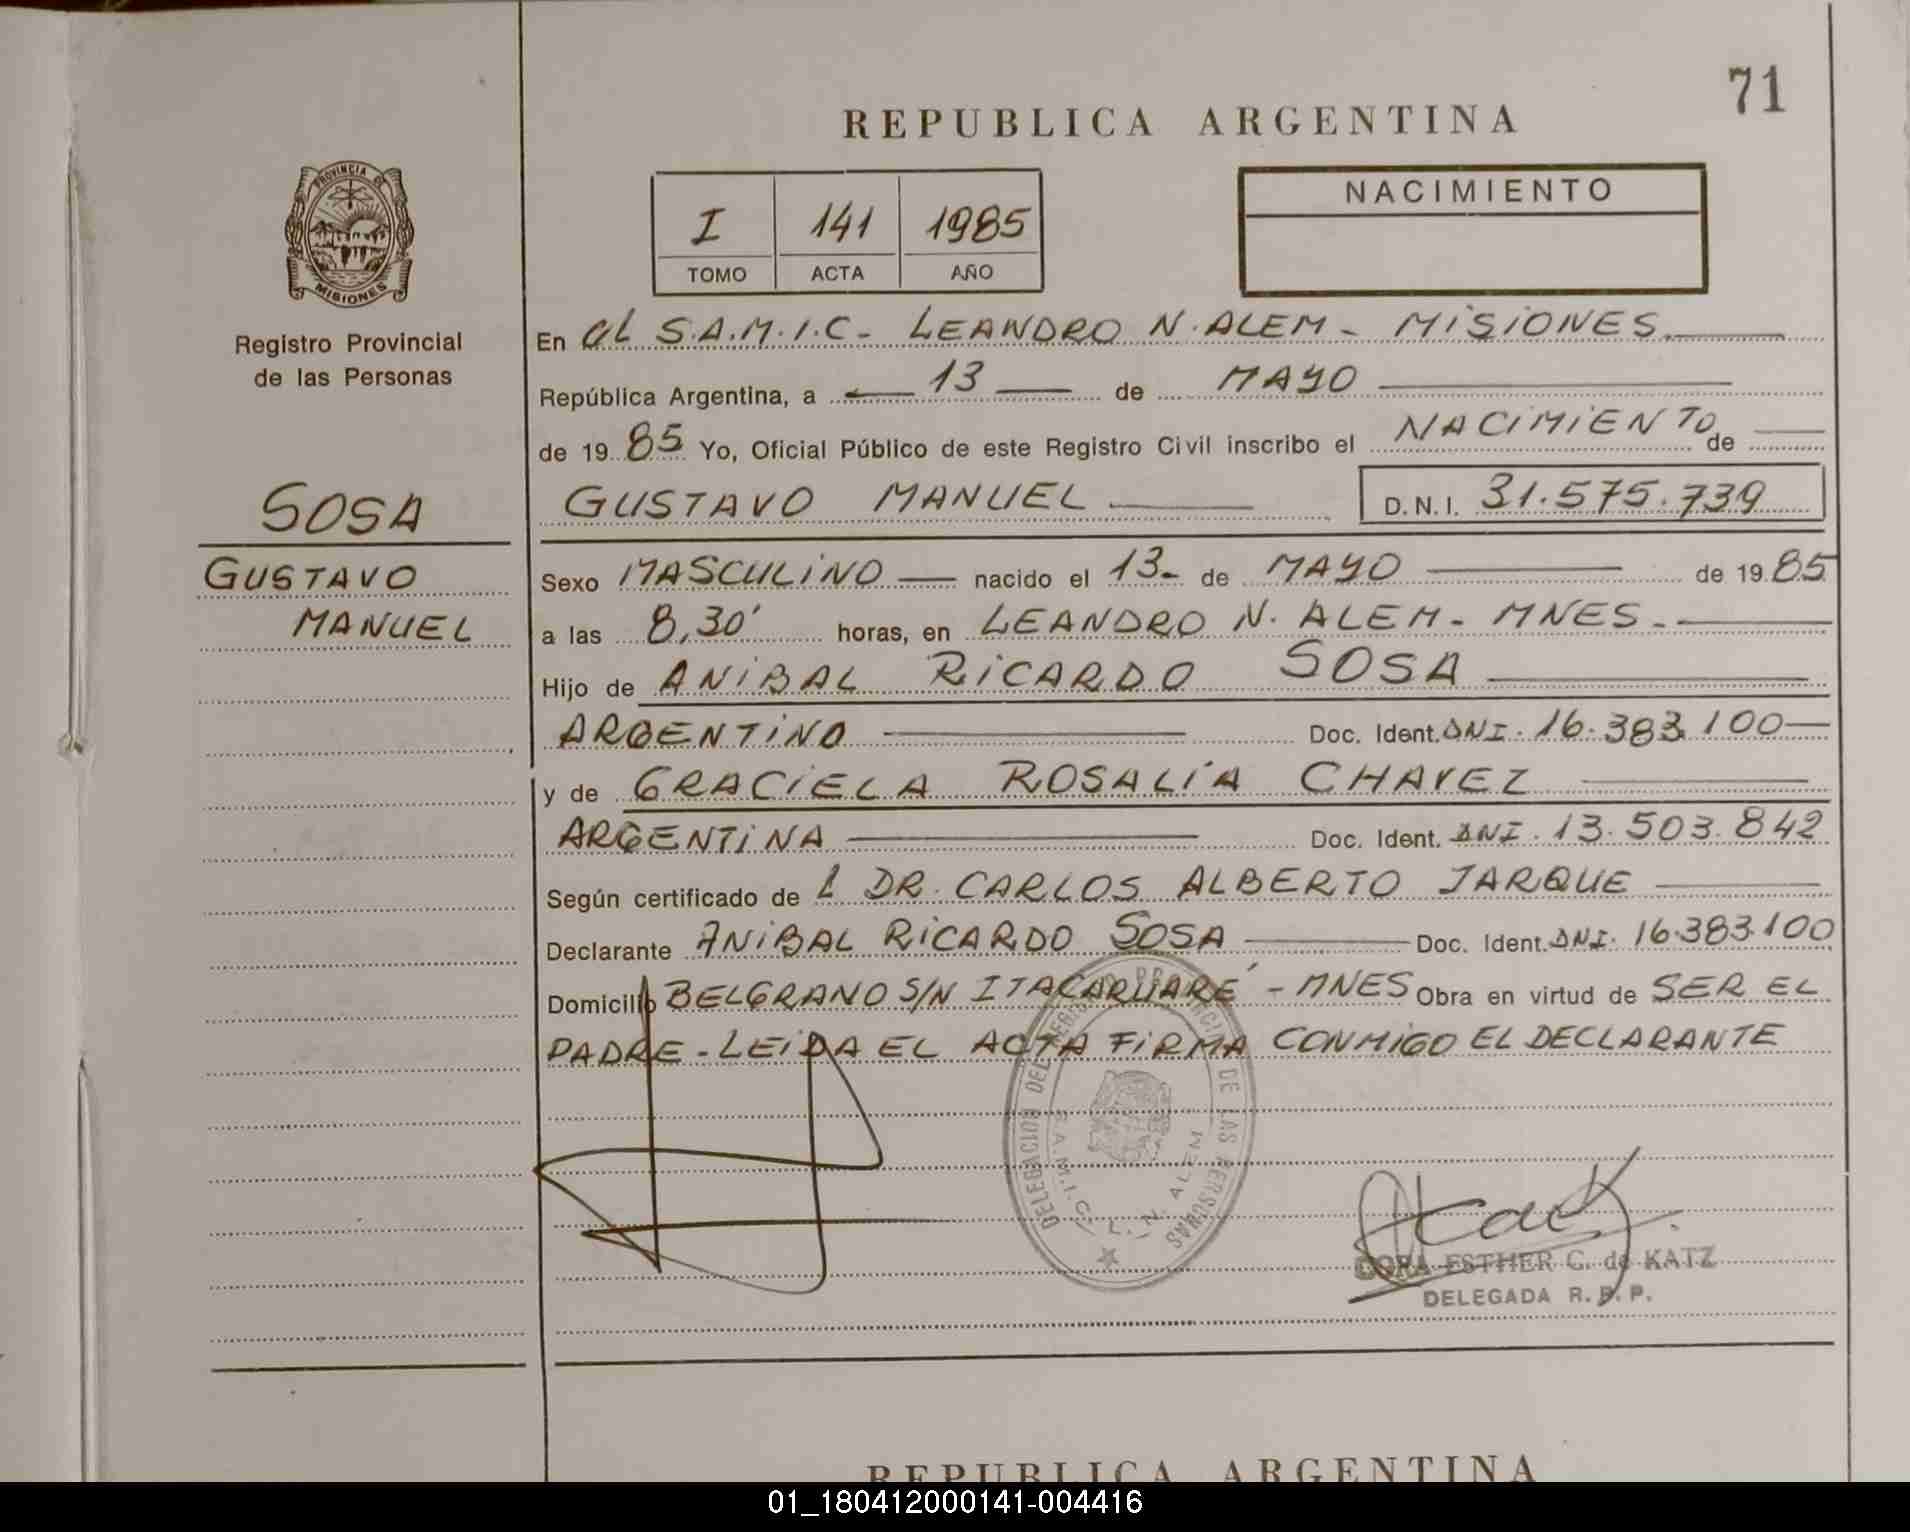 71
REPUBLICA ARGENTINA
PROVINCIA DE
MISIONES
Registro Provincial
de las Personas
I 141 1985
TOMO ACTA AÑO
NACIMIENTO
En el S.A.M.I.C - LEANDRO N. ALEM - MISIONES.
República Argentina, a 13 de MAYO
de 19 85 Yo, Oficial Público de este Registro Civil inscribo el NACIMIENTO de
SOSA
GUSTAVO MANUEL D.N.I. 31.575.739
GUSTAVO
MANUEL
Sexo MASCULINO nacido el 13- de MAYO de 19 85
a las 8,30' horas, en LEANDRO N. ALEM - MNES -
Hijo de ANIBAL RICARDO SOSA
ARGENTINO Doc. Ident. DNI. 16.383.100
y de GRACIELA ROSALIA CHAVEZ
ARGENTINA Doc. Ident. DNI. 13.503.842
Según certificado de L DR. CARLOS ALBERTO JARQUE
Declarante ANIBAL RICARDO SOSA Doc. Ident. DNI. 16.383.100
Domicilio BELGRANO S/N ITACARUARE - MNES Obra en virtud de SER EL
PADRE - LEIDA EL ACTA FIRMA CONMIGO EL DECLARANTE
DELEGACION DEL REGISTRO PROVINCIAL DE LAS PERSONAS
S.A.M.I.C. L. N. ALEM
DORA ESTHER G. de KATZ
DELEGADA R. P. P.
REPUBLICA ARGENTINA
01_180412000141-004416